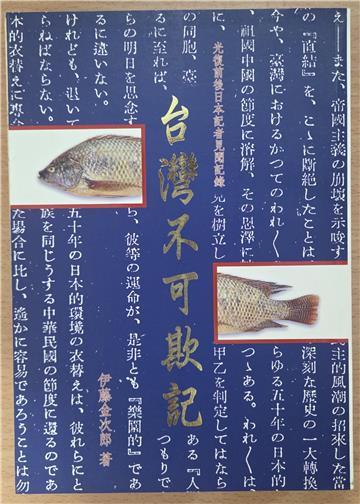 台灣不可欺記
光復前後日本記者見聞記錄
伊藤金次郎 著
え―また、帝國主義の崩壊を示唆す
民主的風潮の招來した當
の『直結』を、こゝに斷絶したことは、
深刻な歴史の一大轉換
今や、臺灣におけるかつてのわれ〳〵
らゆる五十年の日本的
、祖國中國の節度に溶解、その恩澤に
つゝある。われ〳〵は、
に、
を樹立し
甲乙を判定してはなら
の同胞、臺
ある『人
るに至れば、
つもりで
らの明日を思念す
ら、彼等の運命が、是非とも『樂園的』であ
るに違いない。
けれども、退いて
五十年の日本的環境の衣替えは、彼れらにと
らねばならない。
族を同じうする中華民國の節度に還るのであ
本的衣替えに
た場合に比し、遙かに容易であろうことは勿